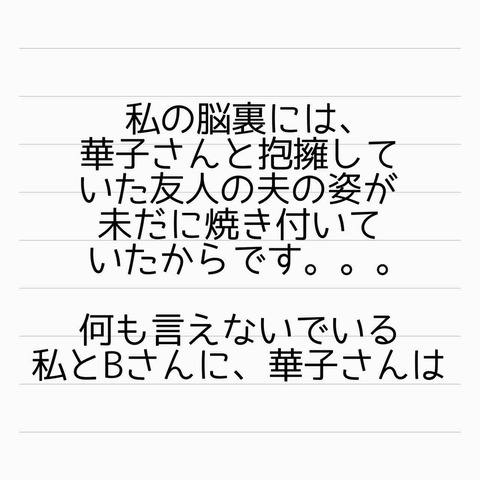 私の脳裏には、
華子さんと抱擁して
いた友人の夫の姿が
未だに焼き付いて
いたからです。。。
何も言えないでいる
私とBさんに、華子さんは